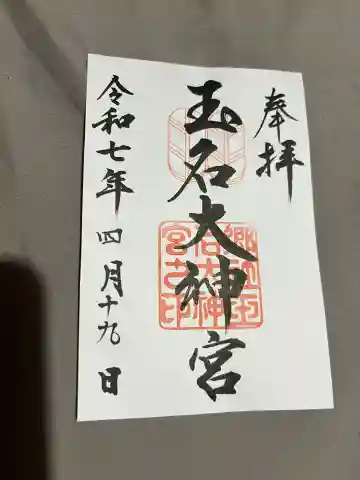 奉拝
玉名大神宮
令和七年 四月十九日